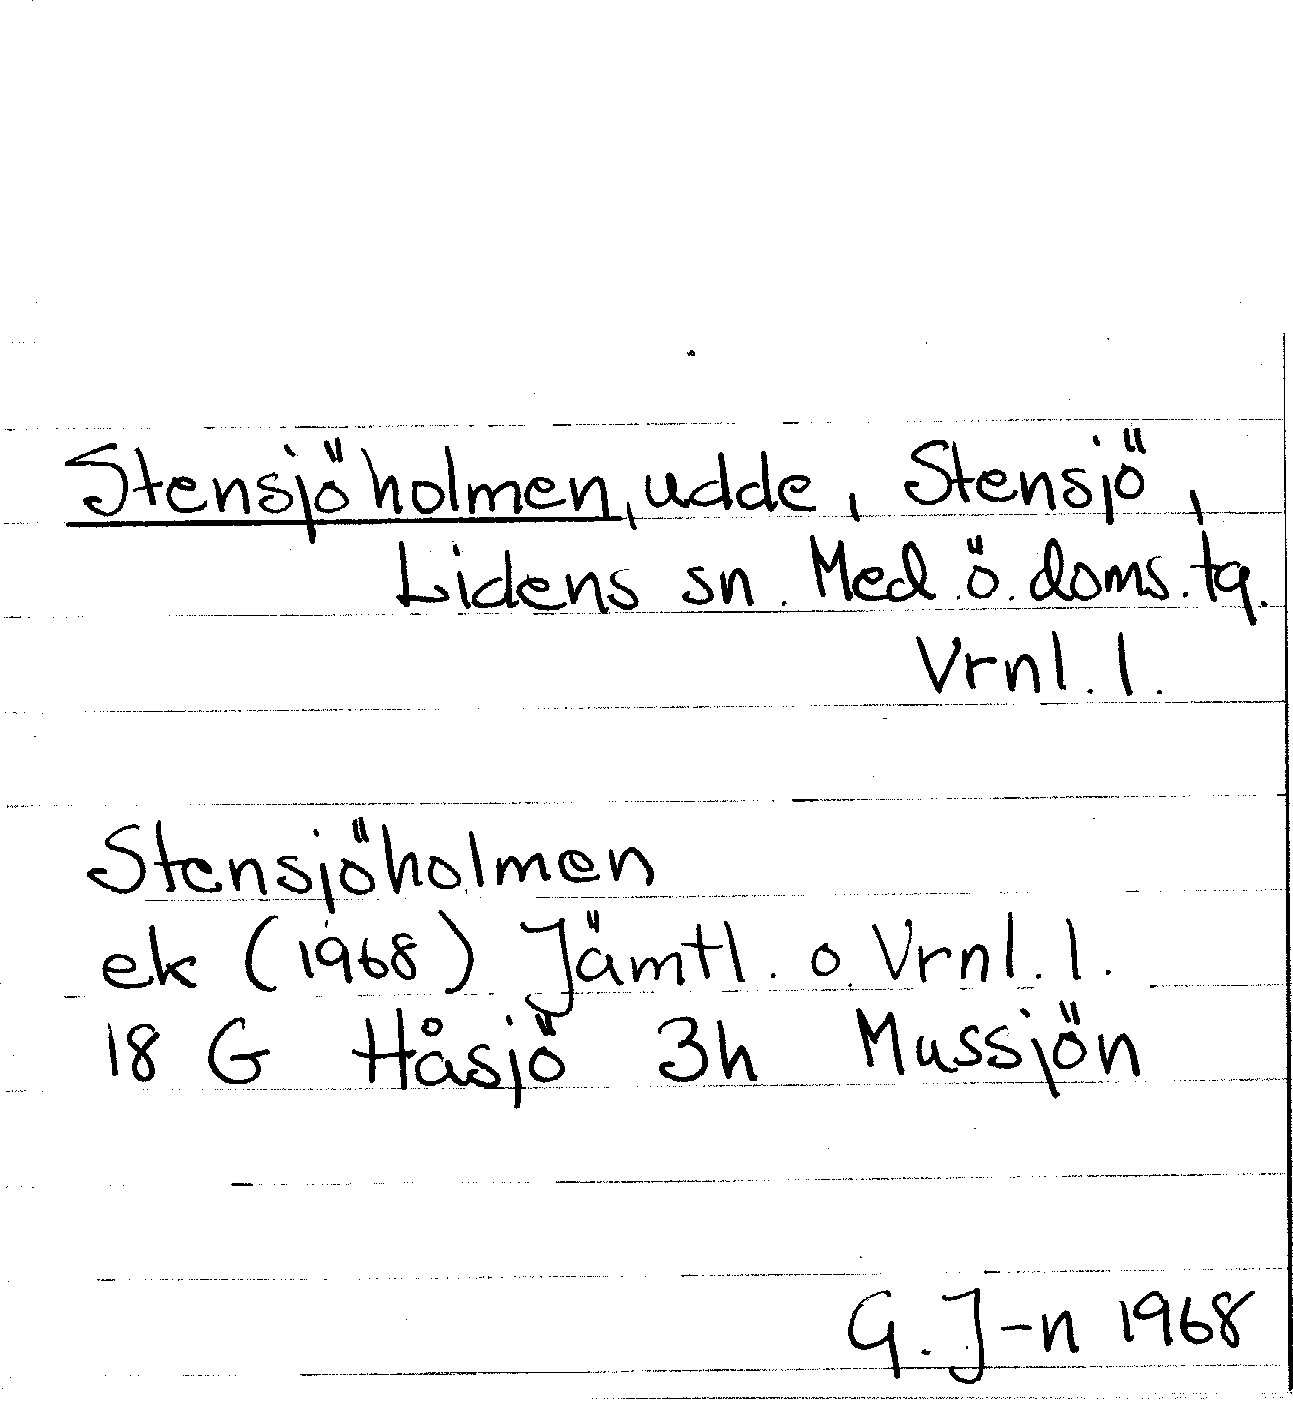 Stensjöholmen, udde, Stensjö,
Lidens sn. Med.ö.doms.tg.
Vrnl.l.
Stensjöholmen
ek (1968) Jämtl. o. Vrnl.l.
18 G Håsjö 3h Mussjön
G.J-n 1968